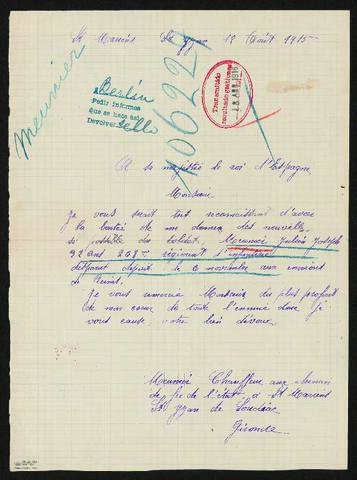 St Mariens St Yzan 12 Août 1915
Meunier
Berlin
Pedir informes
que se hace aqui
Devolver sello
106229
Transmitido
18 ABR 1916
A sa majestée le roi d'Espagne
Monsieur
Je vous serait tout reconnaissant d'avoir
la bontée de me donner des nouvelles
si possible du soldat. Meunier Julien Joseph
92 ans 208e régiment d'infanterie
disparut depuit le 6 novembre aux environs
de Reims.
Je vous remercie Monsieur du plus profont
de mon cœur de toute l'emmo dont je
vous cause votre bien dévoué.
Meunier Chauffeur aux chemin
de fer de l'état à St Mariens
St Yzan de Soudiac
Gironde